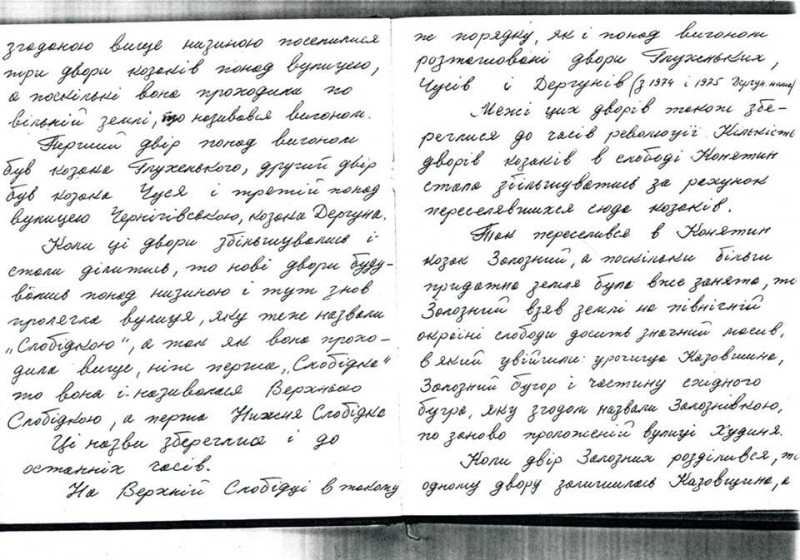 згаданою вище низиною поселилися
три двори козаків понад вулицею,
а поскільки вона проходила по
вільній землі, то називався вигоном.
Перший двір понад вигоном
був козака Глухенького, другий двір
був козака Чуся і третій понад
вулицею Чернігівською, козака Дергуна.
Коли ці двори збільшувались і
стали ділитись, то нові двори буду-
вались понад низиною і тут знов
пролягла вулиця, яку теж назвали
„Слобідкою“, а так як вона прохо-
дила вище, ніж перша „Слобідка“
то вона і називалася Верхньою
Слобідкою, а перша Нижня Слобідка
Ці назви збереглися і до
останніх часів.
На Верхній Слобідці в такому
ж порядку, як і понад вигоном
розташовані двори Глухеньких,
Чусів і Дергунів (з 1974 і 1975 Дергун.
Межі цих дворів також збе-
реглися до часів революції. Кількість
дворів козаків в слободі Конятин
стала збільшуватись за рахунок
переселявшихся сюда козаків.
Так переселився в Конятин
козак Залозний, а поскільки більш
придатна земля була вже занята, то
Залозний взяв землі на північній
окраїні слободи досить значний масив,
в який увійшли: урочища Казовщина,
Залозний бугор і частину східного
бугра, яку згодом назвали Залознівкою,
по заново проложеній вулиці Худиня.
Коли двір Залозних розділився, то
одному двору залишилась Казовщина, а